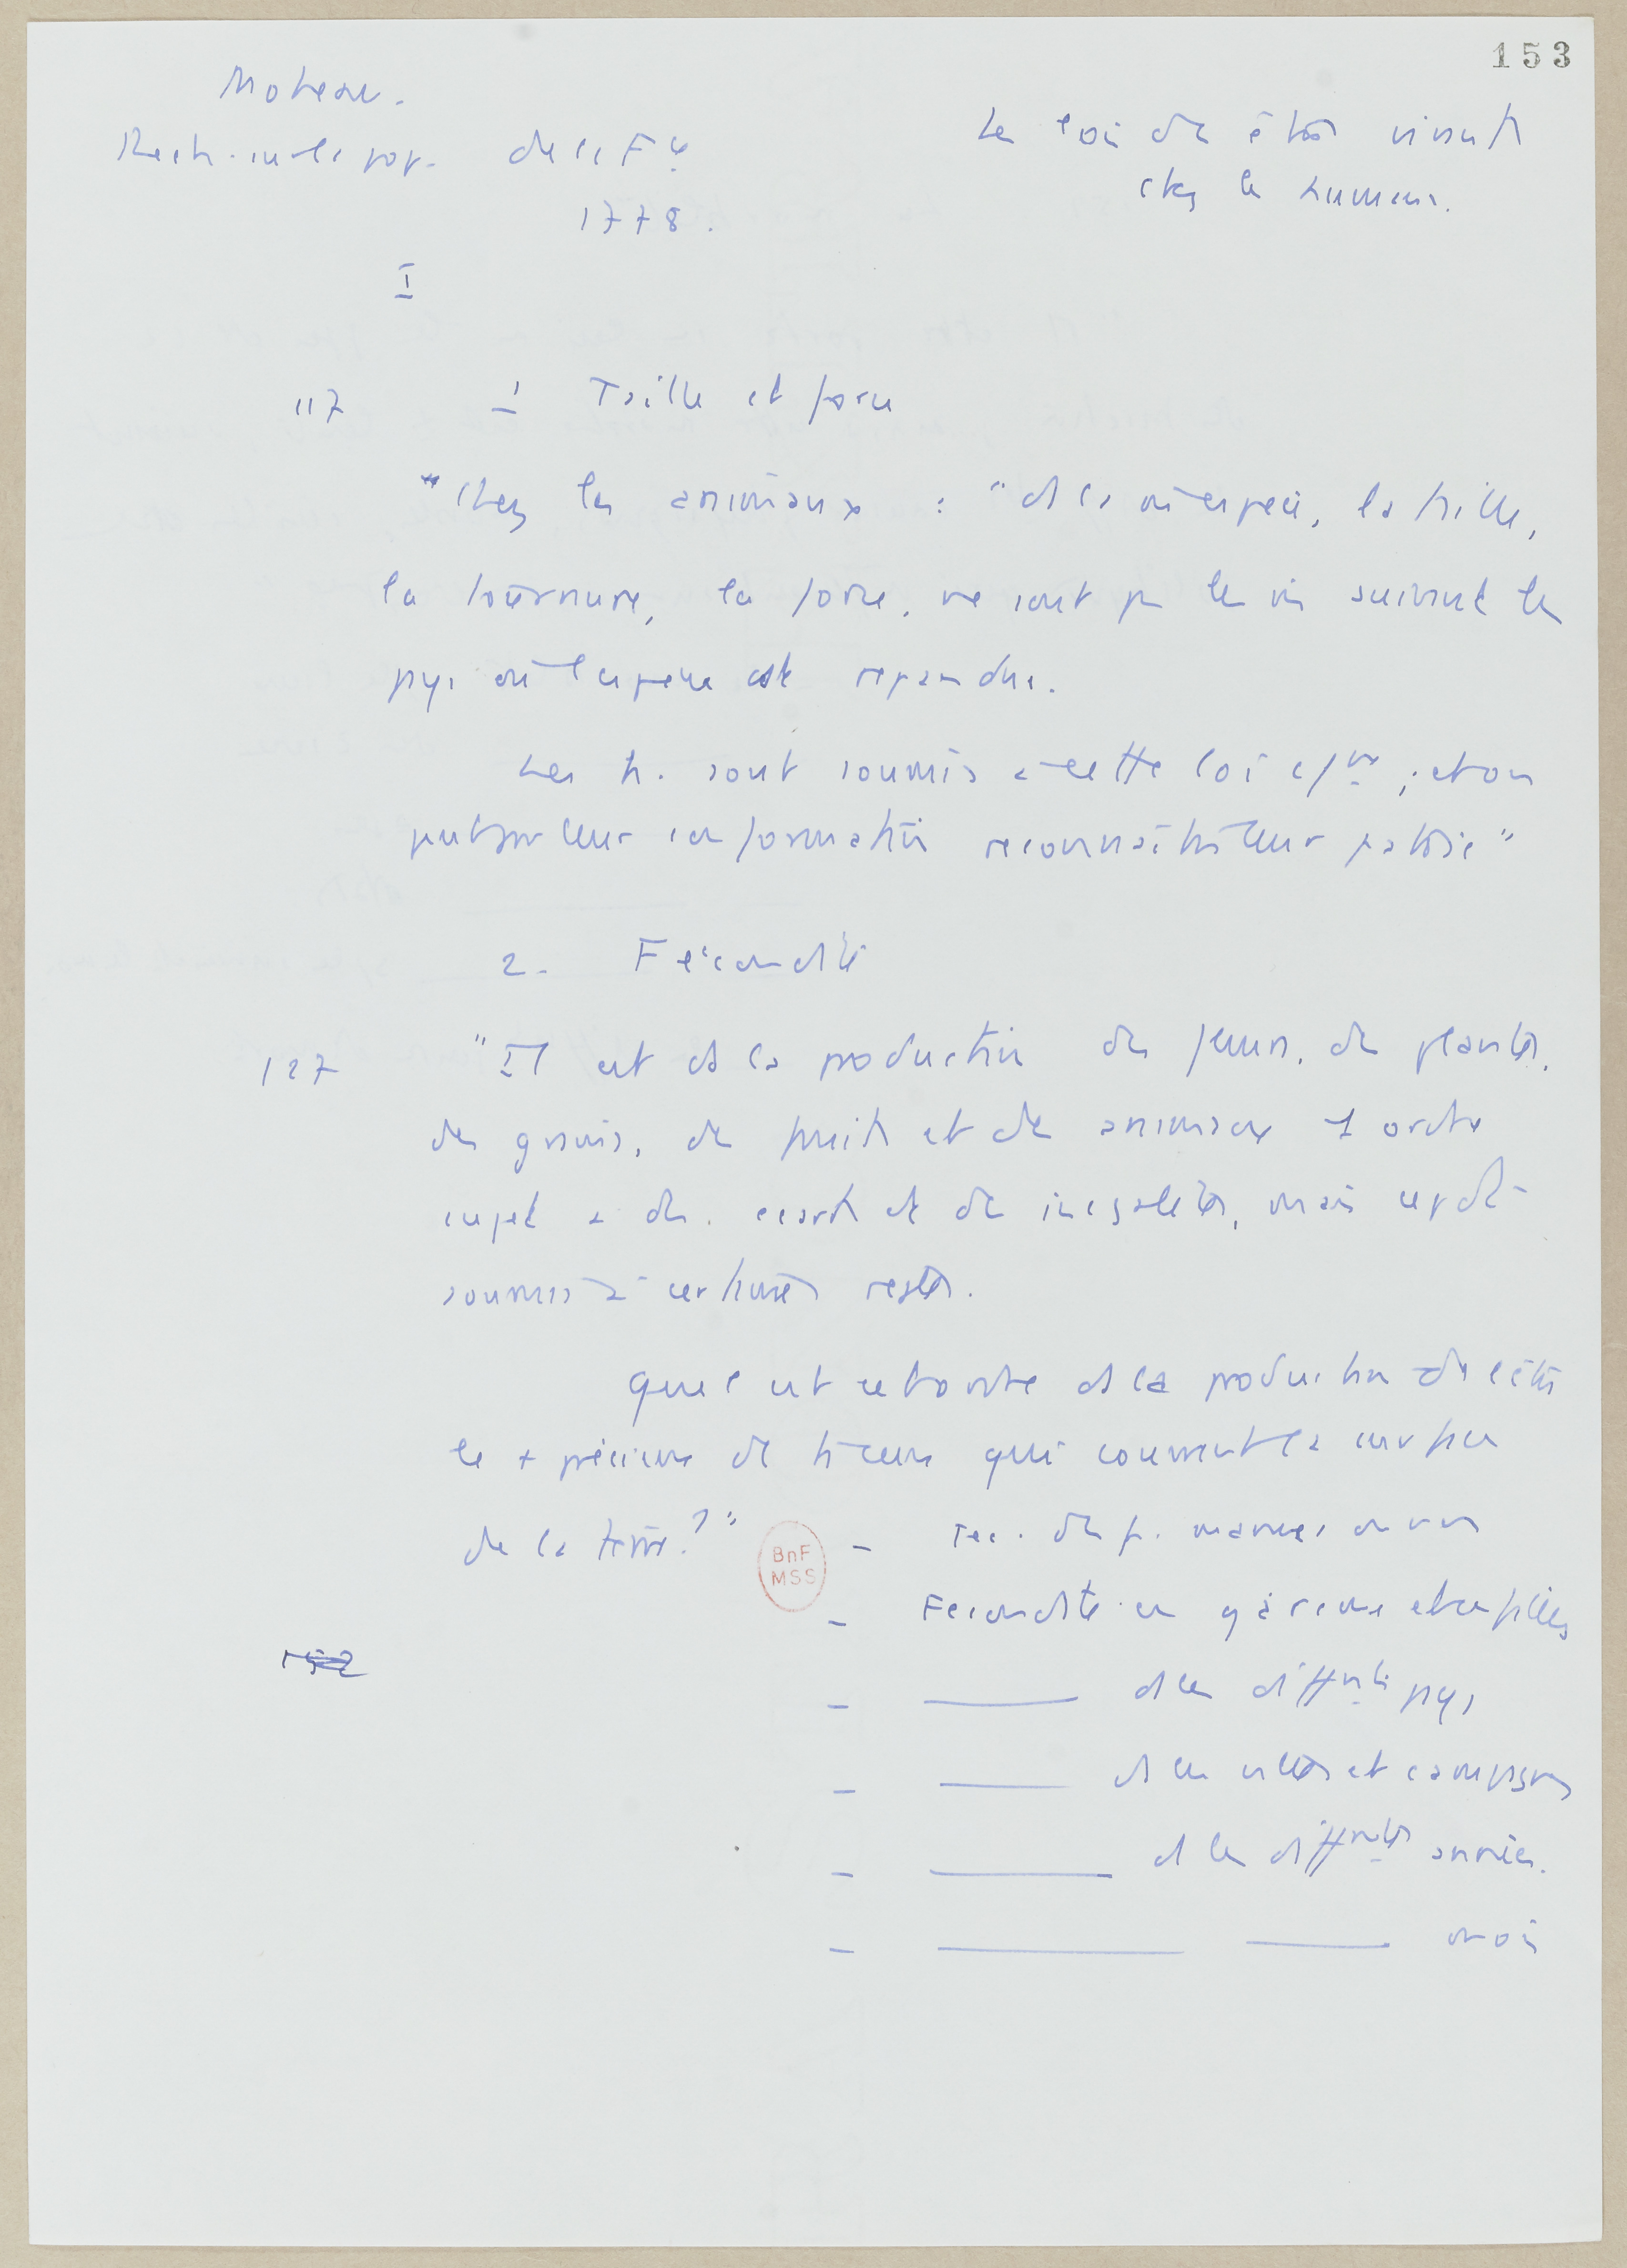 153
Moheau.
Rech. sur la pop. de la Fce
1778.
Les lois des êtres vivants
chez les humains.
I
117 1 Taille et force
"Chez les animaux : "ds la m espèce, la taille,
la tournure, la force, ne sont pas les m suivant les
pays où l'espèce est répandue.
Les h. sont soumis à cette loi ; et on
peut par leur conformation reconnaître leur patrie"
2. Fécondité
127 "Il est ds la production des fleurs, des plantes,
des grains, des fruits et des animaux 1 ordre
sujet à des écarts et des inégalités, mais cepdt
soumis à certaines règles.
Quel est cet ordre ds la production de l'être
le + précieux de ts ceux qui couvrent la surface
de la terre?"
BnF
MSS
- Fec. des f. mariées ou non
- Fécondité en garçons et en filles
152
- ds les différents pays
- ds les villes et campagnes
- ds les différentes années.
- mois